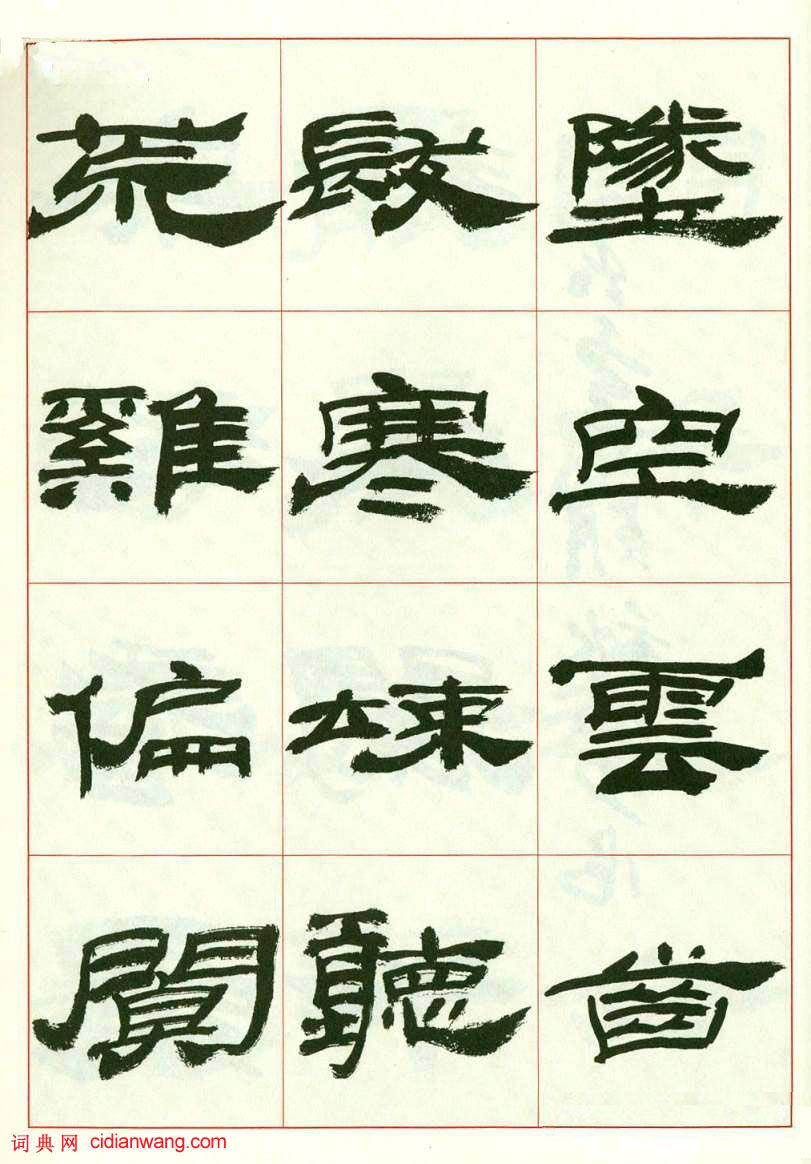 墜空雲齒
髮寒竦聽
荒雞偏闃
词典网 cidianwang.com